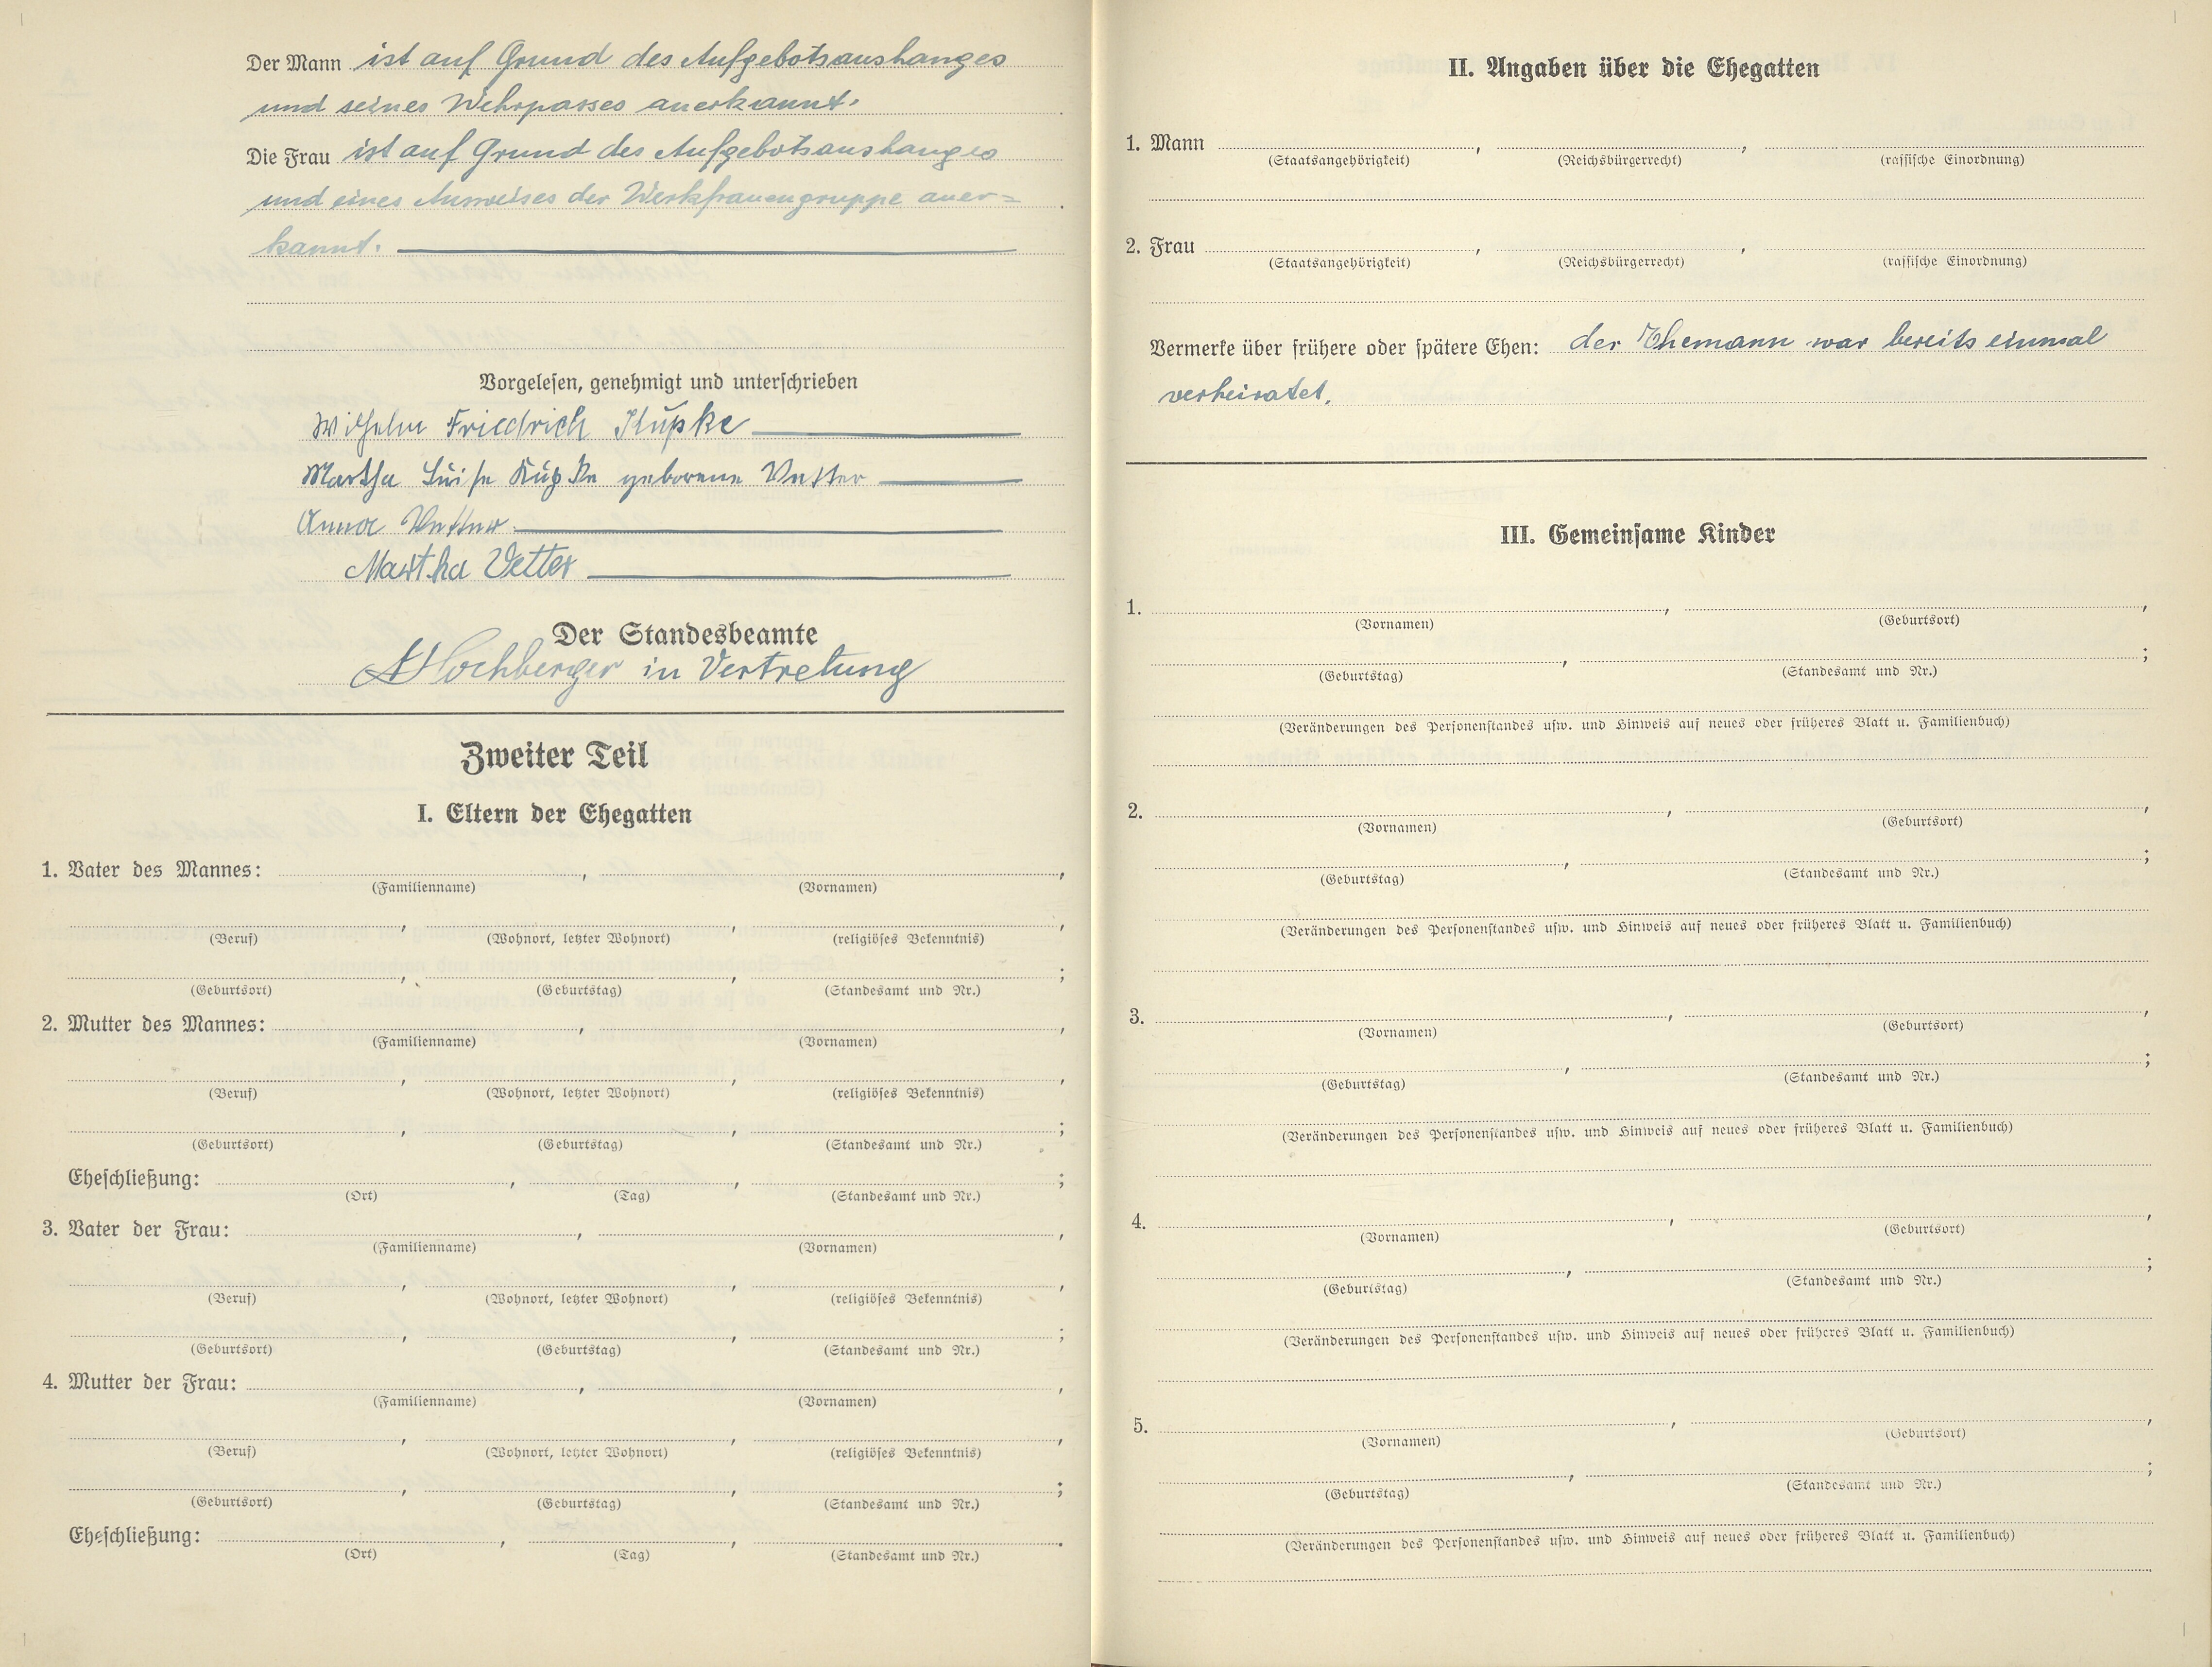 Der Mann ist auf Grund des Aufgebotsaushanges
und seines Wehrpasses anerkannt.
Die Frau ist auf Grund des Aufgebotsaushanges
und eines Ausweises der Werkfrauengruppe aner=
kannt.
Vorgelesen, genehmigt und unterschrieben
Wilhelm Friedrich Kupke
Martha Luise Kupke geborene Vetter
Anna Vetter
Martha Vetter
Der Standesbeamte
A Hochberger in Vertretung
Zweiter Teil
I. Eltern der Ehegatten
1. Vater des Mannes: , ,
(Familienname) (Vornamen)
, , ,
(Beruf) (Wohnort, letzter Wohnort) (religiöses Bekenntnis)
, , ;
(Geburtsort) (Geburtstag) (Standesamt und Nr.)
2. Mutter des Mannes: , ,
(Familienname) (Vornamen)
, , ,
(Beruf) (Wohnort, letzter Wohnort) (religiöses Bekenntnis)
, , ;
(Geburtsort) (Geburtstag) (Standesamt und Nr.)
Eheschließung: , , ;
(Ort) (Tag) (Standesamt und Nr.)
3. Vater der Frau: , ,
(Familienname) (Vornamen)
, , ,
(Beruf) (Wohnort, letzter Wohnort) (religiöses Bekenntnis)
, , ;
(Geburtsort) (Geburtstag) (Standesamt und Nr.)
4. Mutter der Frau: , ,
(Familienname) (Vornamen)
, , ,
(Beruf) (Wohnort, letzter Wohnort) (religiöses Bekenntnis)
, , ;
(Geburtsort) (Geburtstag) (Standesamt und Nr.)
Eheschließung: , , .
(Ort) (Tag) (Standesamt und Nr.)
II. Angaben über die Ehegatten
1. Mann , ,
(Staatsangehörigkeit) (Reichsbürgerrecht) (rassische Einordnung)
2. Frau , ,
(Staatsangehörigkeit) (Reichsbürgerrecht) (rassische Einordnung)
Vermerke über frühere oder spätere Ehen: der Ehemann war bereits einmal
verheiratet.
III. Gemeinsame Kinder
1. , ,
(Vornamen) (Geburtsort)
, ;
(Geburtstag) (Standesamt und Nr.)
(Veränderungen des Personenstandes usw. und Hinweis auf neues oder früheres Blatt u. Familienbuch)
2. , ,
(Vornamen) (Geburtsort)
, ;
(Geburtstag) (Standesamt und Nr.)
(Veränderungen des Personenstandes usw. und Hinweis auf neues oder früheres Blatt u. Familienbuch)
3. , ,
(Vornamen) (Geburtsort)
, ;
(Geburtstag) (Standesamt und Nr.)
(Veränderungen des Personenstandes usw. und Hinweis auf neues oder früheres Blatt u. Familienbuch)
4. , ,
(Vornamen) (Geburtsort)
, ;
(Geburtstag) (Standesamt und Nr.)
(Veränderungen des Personenstandes usw. und Hinweis auf neues oder früheres Blatt u. Familienbuch)
5. , ,
(Vornamen) (Geburtsort)
, ;
(Geburtstag) (Standesamt und Nr.)
(Veränderungen des Personenstandes usw. und Hinweis auf neues oder früheres Blatt u. Familienbuch)